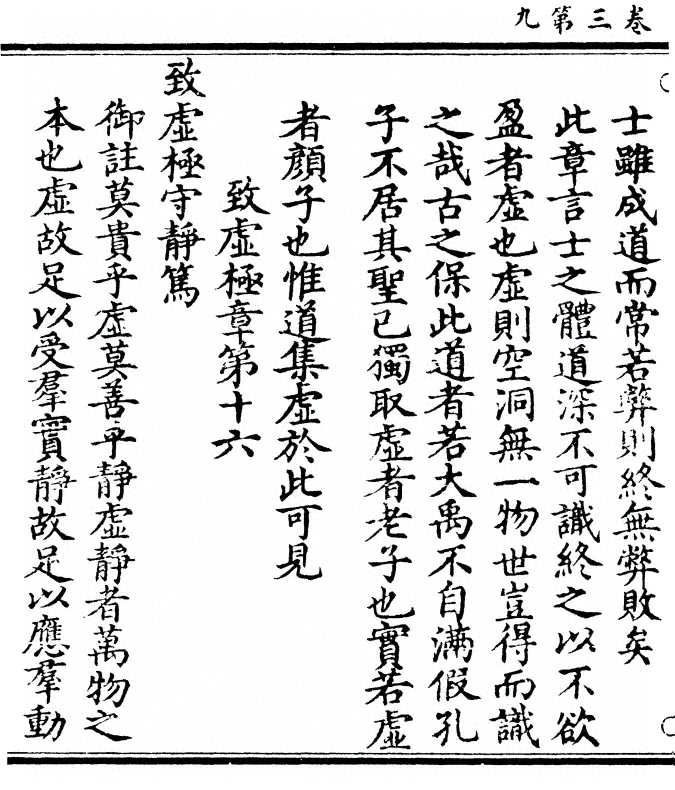 卷三第九
士雖成道而常若弊則終無弊敗矣
此章言士之體道深不可識終之以不欲
盈者虛也虛則空洞無一物世豈得而識
之哉古之保此道者若大禹不自滿假孔
子不居其聖已獨取虛者老子也實若虛
者顏子也惟道集虛於此可見
致虛極章第十六
致虛極守靜篤
御註莫貴乎虛莫善乎靜虛靜者萬物之
本也虛故足以受羣實靜故足以應羣動